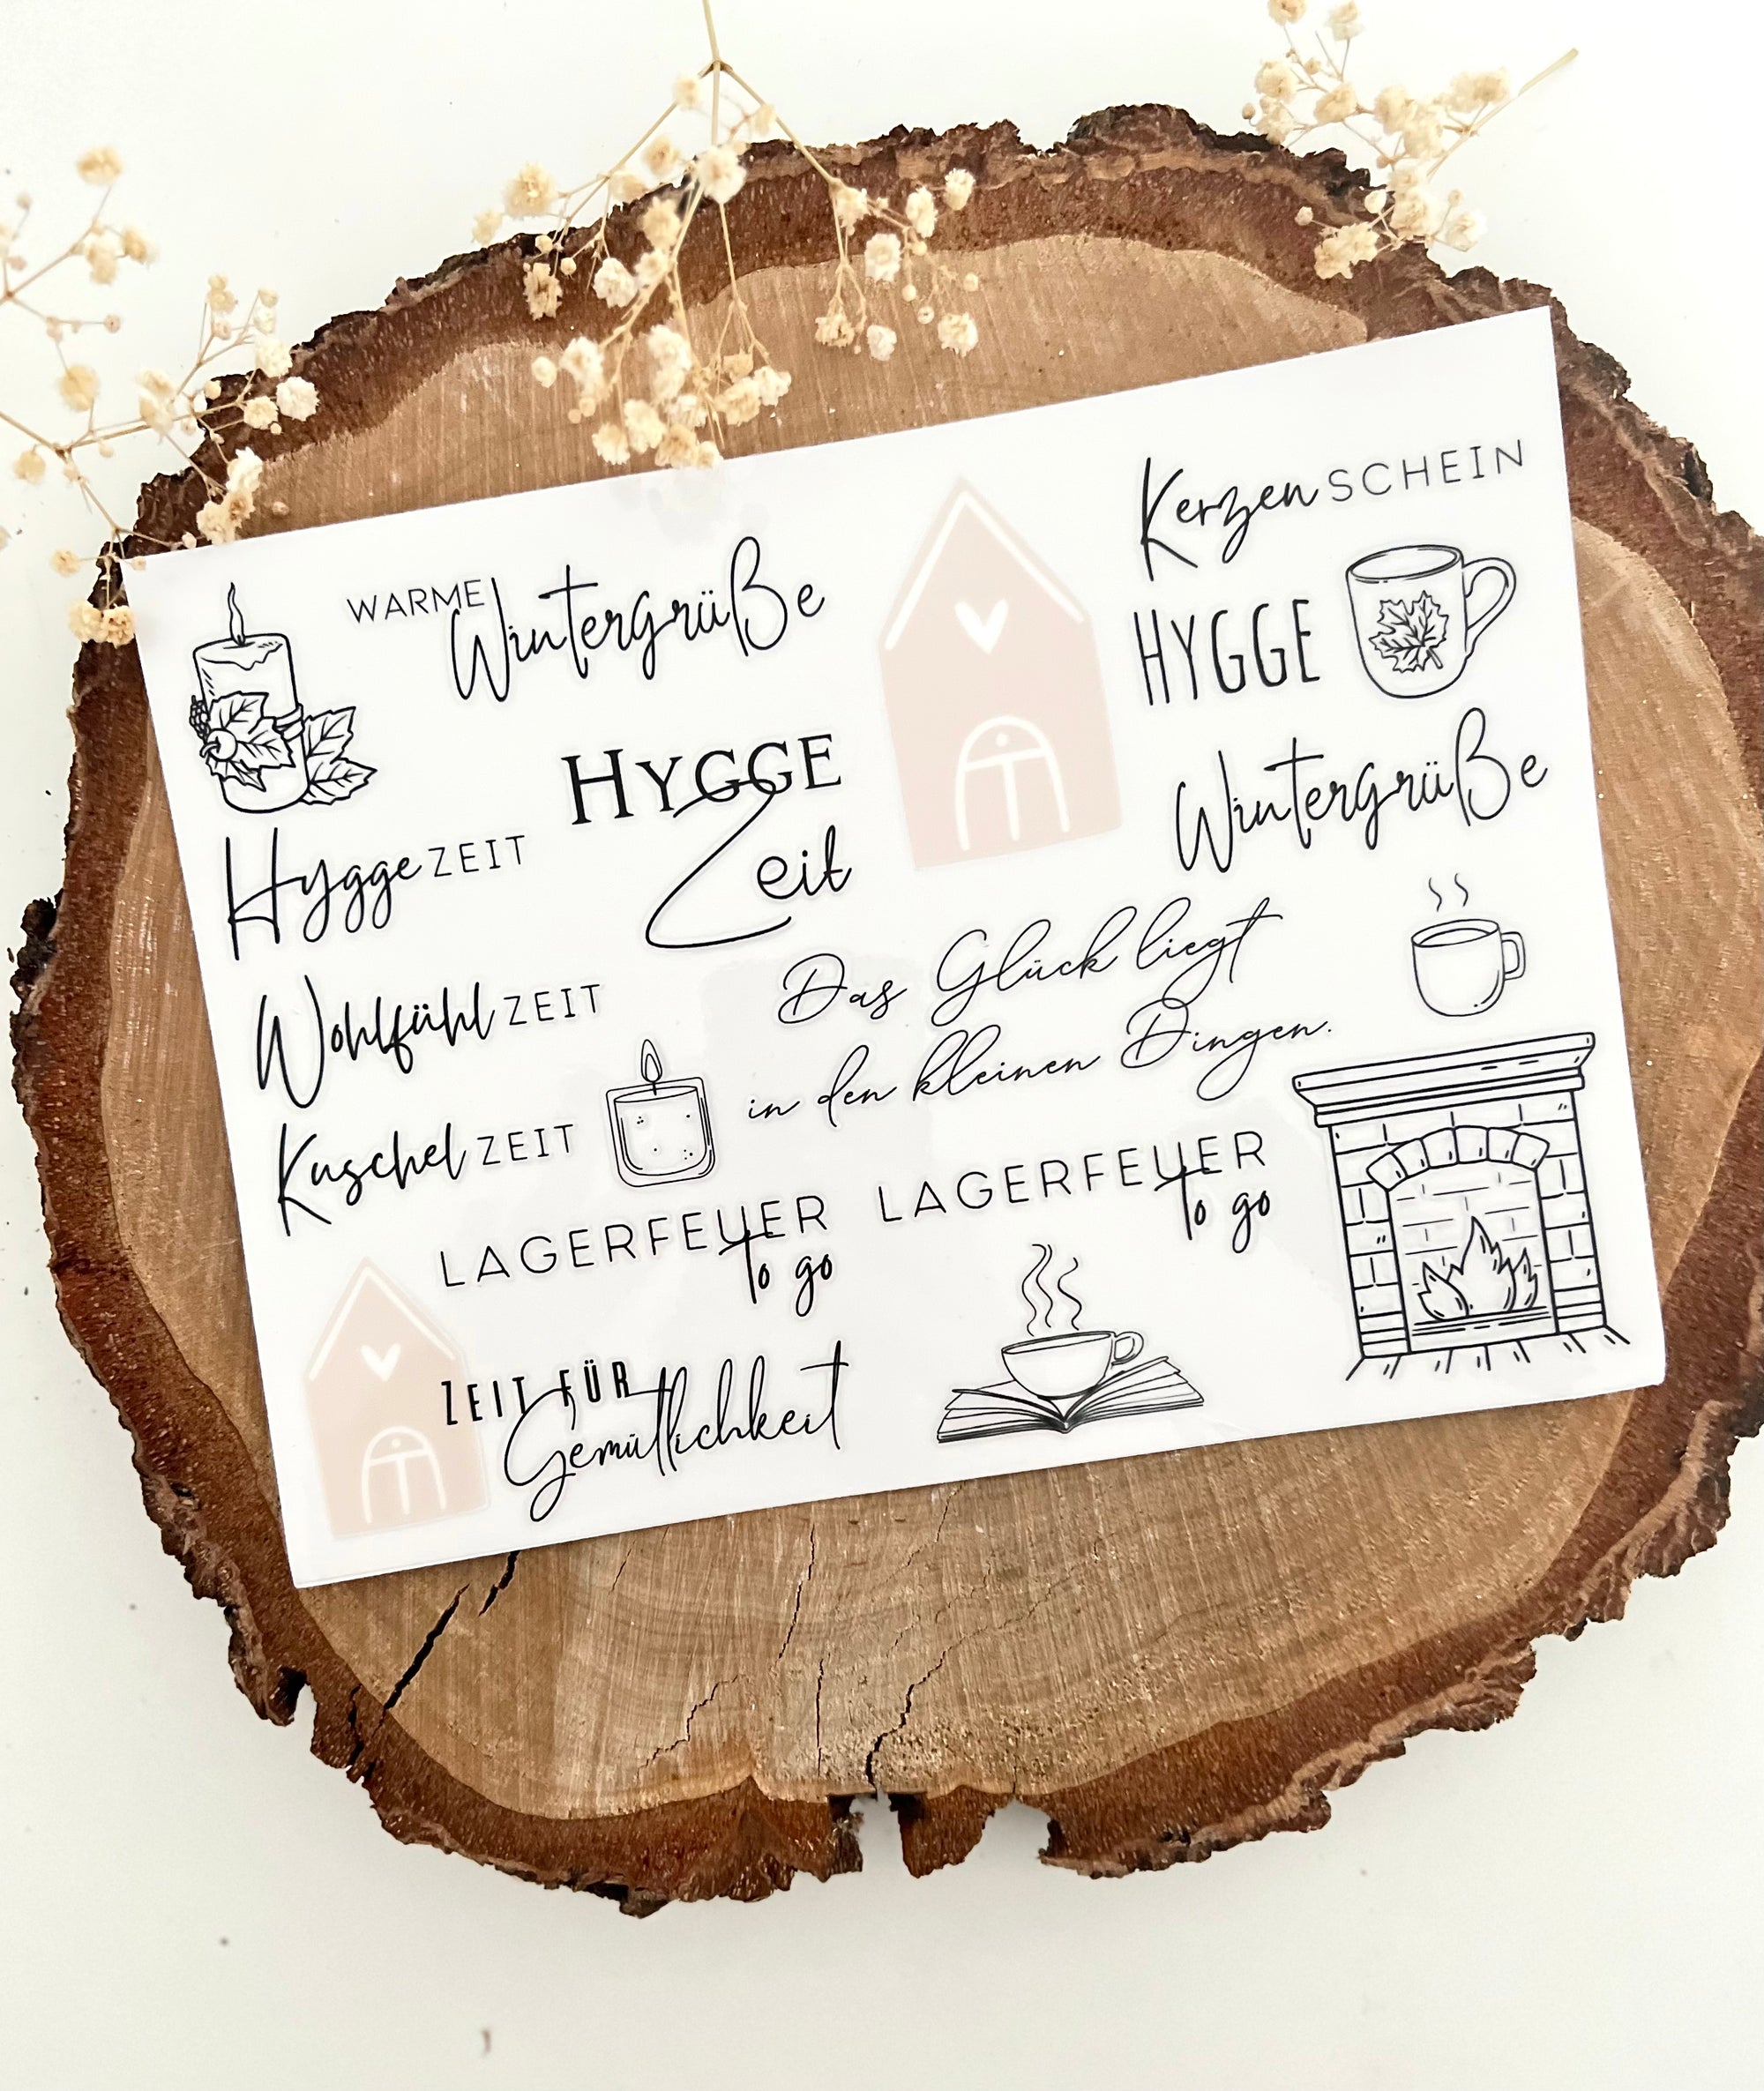 WARME
Wintergrüße
KerzenSCHEIN
HYGGE
HYGGE
Zeit
Wintergrüße
HyggeZEIT
WohlfühlZEIT
Das Glück liegt
in den kleinen Dingen.
KuschelZEIT
LAGERFEUER
To go
LAGERFEUER
To go
ZEIT FÜR
Gemütlichkeit